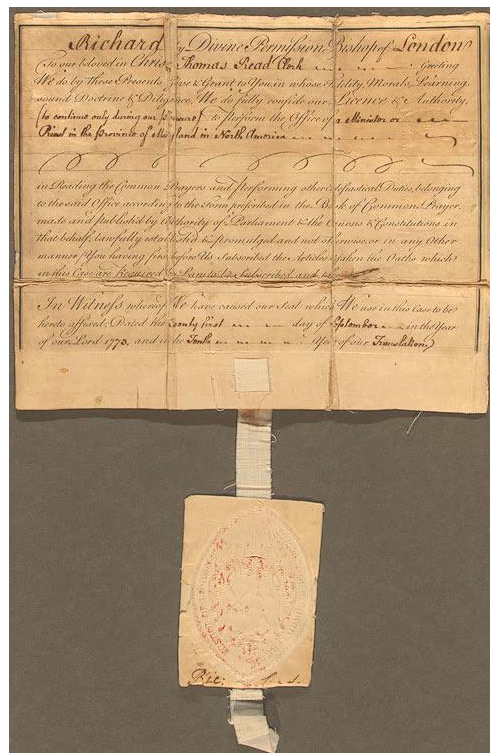 Richard by Divine Permission Bishop of London
To our beloved in Christ Thomas Read Clerk Greeting
We do by these Presents Give & Grant to You, in whose Fidelity, Morals, Learning,
sound Doctrine & Diligence, We do fully confide our Licence & Authority,
(to continue only during our Pleasure) to perform the Office of a Minister or
Priest in the Province of Maryland in North America
in Reading the Common Prayers and performing other Eclesiastical Duties, belonging
to the said Office according to the Form prescribed in the Book of Common Prayer
made and publish'd by Authority of Parliament & the Canons & Constitutions in
that behalf, lawfully established & promulged and not otherwise or in any Other
manner (You having first before Us Subscribed the Articles & taken the Oaths which
in this Case are Required to be Subscribed and taken)
In Witness whereof We have caused our Seal which We use in this Case to be
hereto affixed, Dated the twenty first day of September in the Year
of our Lord 1773, and in the Tenth Year of our Translation